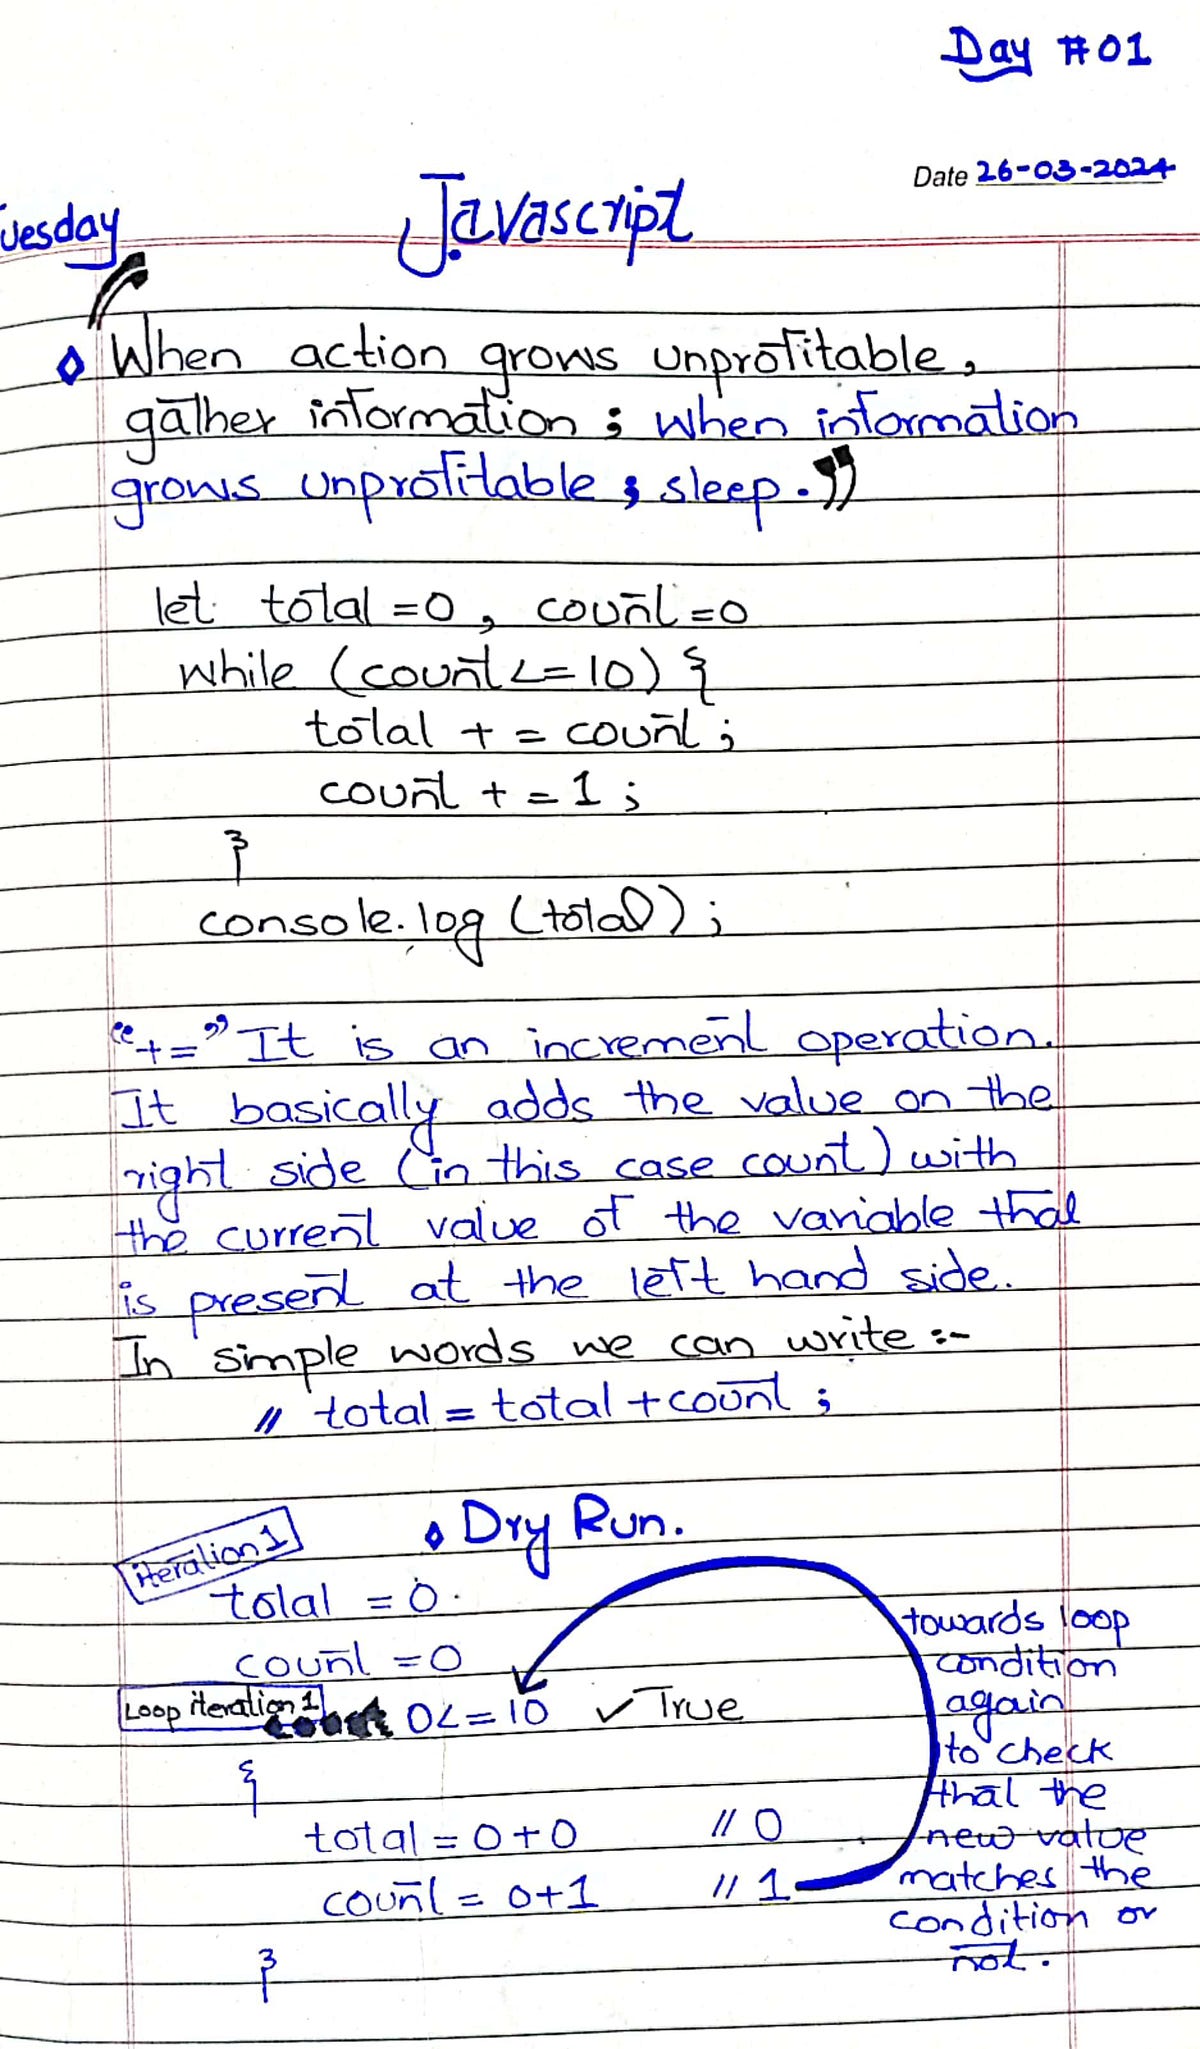 Day #01
Date 26-03-2024
uesday
Javascript
“When action grows unprofitable,
gather information; when information
grows unprofitable; sleep.”
let total=0, count=0
while (count<=10) {
total + = count;
count + = 1;
}
console.log (total);
“+=” It is an increment operation.
It basically adds the value on the
right side (in this case count) with
the current value of the variable that
is present at the left hand side.
In simple words we can write :-
// total = total + count ;
Dry Run.
iteration 1
total = 0.
count = 0
Loop iteration 1 0<=10 ✓ True
{
total = 0+0 // 0
count = 0+1 // 1
}
towards loop
condition
again
to check
that the
new value
matches the
condition or
not.